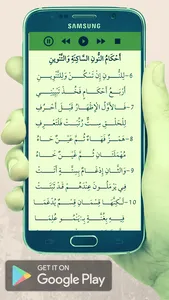 SAMSUNG
أَحْكَامُ النُّونِ السَّاكِنَةِ وَالتَّنْوِينِ
6- لِلنُّونِ إِنْ تَسْكُنْ وَلِلتَّنْوِينِ
أَرْبَعُ أَحْكَامٍ فَخُذْ تَبْيِينِي
7- فَالأَوَّلُ الإِظْهَارُ قَبْلَ أَحْرُفِ
لِلْحَلْقِ سِتٌّ رُتِّبَتْ فَلْتَعْرِفِ
8- هَمْزٌ فَهَاءٌ ثُمَّ عَيْنٌ حَاءُ
مُهْمَلَتَانِ ثُمَّ غَيْنٌ خَاءُ
9- وَالثَّانِ إِدْغَامٌ بِسِتَّةٍ أَتَتْ
فِي يَرْمُلُونَ عِنْدَهُمْ قَدْ ثَبَتَتْ
10- لَكِنَّهَا قِسْمَانِ قِسْمٌ يُدْغَمَا
فِيهِ بِغُنَّةٍ بِيَنْمُو عُلِمَا
GET IT ON
Google Play